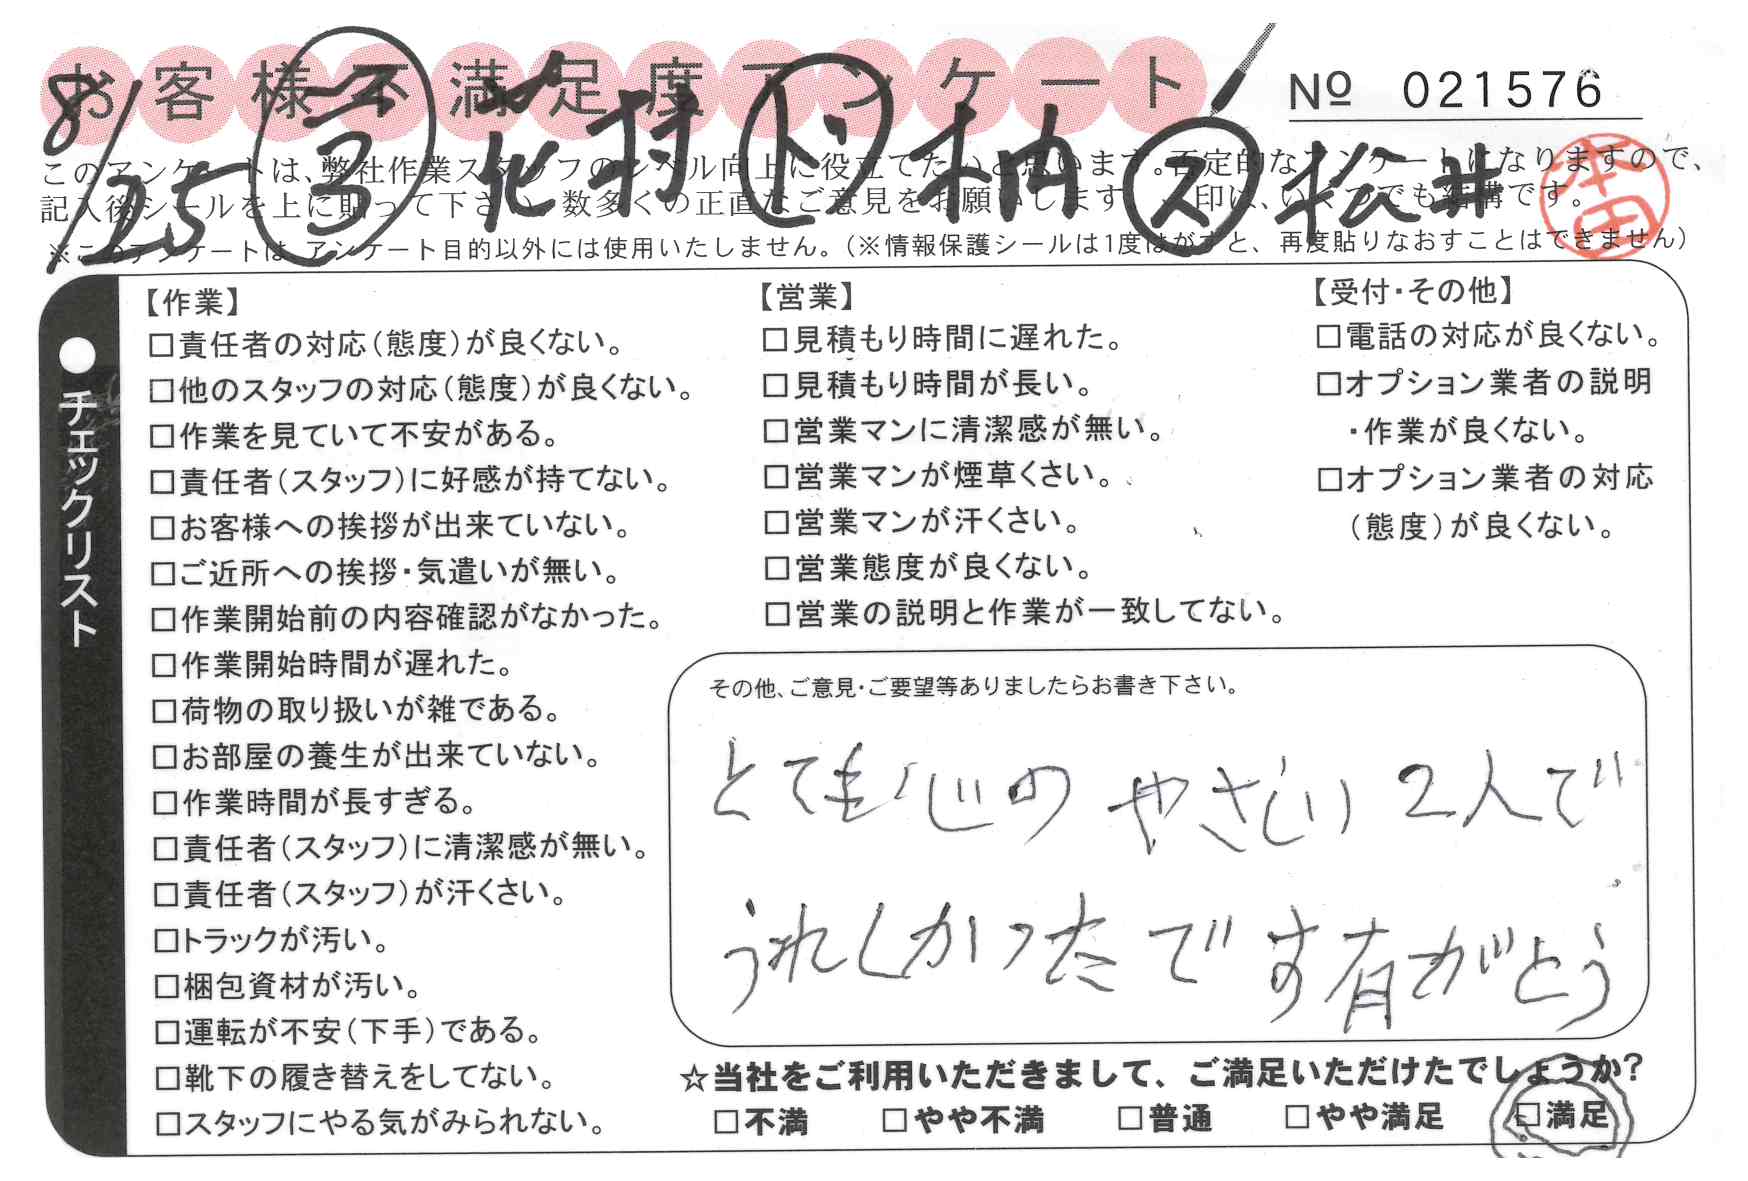 お客様不満足度アンケート
No 021576
8/25 営 花村 ド 柚 ス 松井
本田
このアンケートは、弊社作業スタッフのレベル向上に役立てたいと思います。否定的なアンケートになりますので、
記入後シールを上に貼って下さい。数多くの正直なご意見をお願いします。✓印は、いくつでも結構です。
※このアンケートは、アンケート目的以外には使用いたしません。（※情報保護シールは1度はがすと、再度貼りなおすことはできません）
●チェックリスト
【作業】
□責任者の対応（態度）が良くない。
□他のスタッフの対応（態度）が良くない。
□作業を見ていて不安がある。
□責任者（スタッフ）に好感が持てない。
□お客様への挨拶が出来ていない。
□ご近所への挨拶・気遣いが無い。
□作業開始前の内容確認がなかった。
□作業開始時間が遅れた。
□荷物の取り扱いが雑である。
□お部屋の養生が出来ていない。
□作業時間が長すぎる。
□責任者（スタッフ）に清潔感が無い。
□責任者（スタッフ）が汗くさい。
□トラックが汚い。
□梱包資材が汚い。
□運転が不安（下手）である。
□靴下の履き替えをしてない。
□スタッフにやる気がみられない。
【営業】
□見積もり時間に遅れた。
□見積もり時間が長い。
□営業マンに清潔感が無い。
□営業マンが煙草くさい。
□営業マンが汗くさい。
□営業態度が良くない。
□営業の説明と作業が一致してない。
【受付・その他】
□電話の対応が良くない。
□オプション業者の説明
・作業が良くない。
□オプション業者の対応
（態度）が良くない。
その他、ご意見・ご要望等ありましたらお書き下さい。
とても心のやさしい2人で
うれしかったです有がとう
☆当社をご利用いただきまして、ご満足いただけたでしょうか？
□不満 □やや不満 □普通 □やや満足 □満足